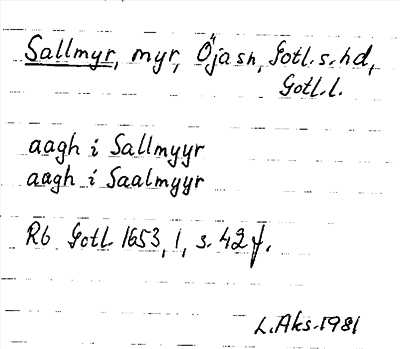 Sallmyr, myr, Öja sn, Gotl. s. hd,
Gotl. l.
aagh i Sallmyyr
aagh i Saalmyyr
Rb Gotl. 1653, 1, s. 42 f.
L. Aks. 1981